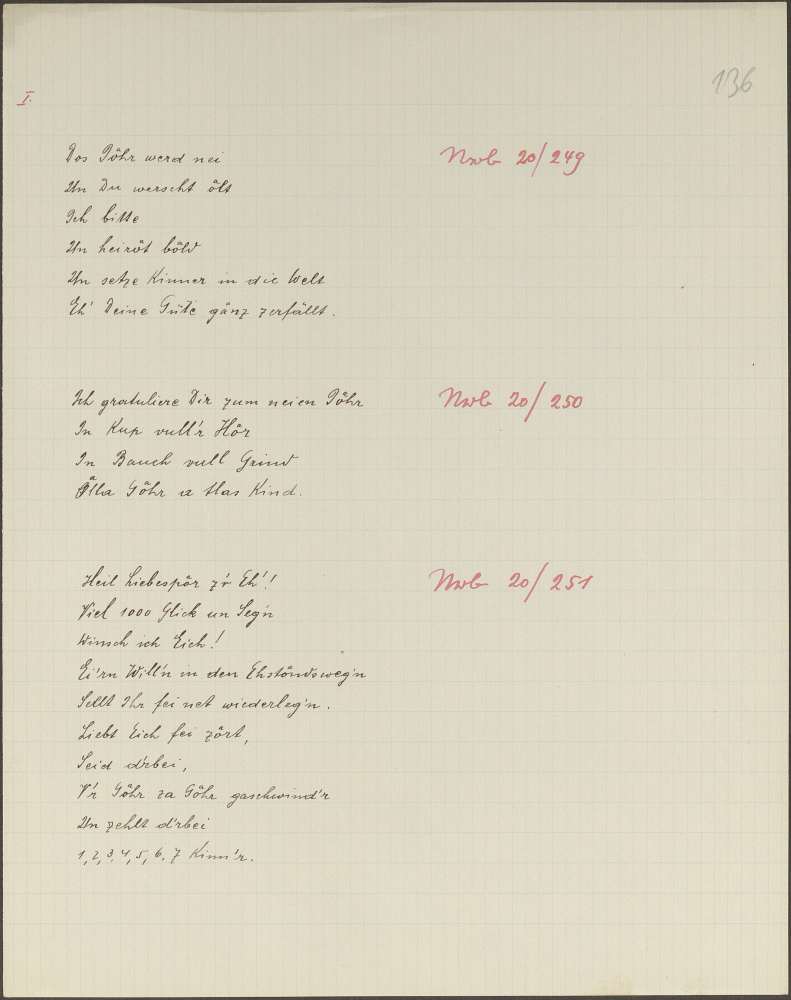 136
I.
Dos Jåhr werd nei
Nwb 20/249
Un Du werscht ålt
Ich bitte
Un heiråt båld
Un setze Kinner in die Welt
Eh' Deine Güte gånz zerfällt.
Ich gratuliere Dir zum neien Jåhr
Nwb 20/250
In Kup vull'r Hår
In Bauch vull Grind
Ålla Jåhr a klas Kind.
Heil Liebespår z'r Eh'!
Nwb 20/251
Viel 1000 Glick un Seg'n
Winsch ich Eich!
Ei'rn Will'n in den Ehståndsweg'n
Sellt Ihr fei net wiederleg'n.
Liebt Eich fei zårt,
Seid d'rbei,
V'r Jåhr za Jåhr gaschwind'r
Un zehlt d'rbei
1, 2, 3, 4, 5, 6, 7 Kinn'r.